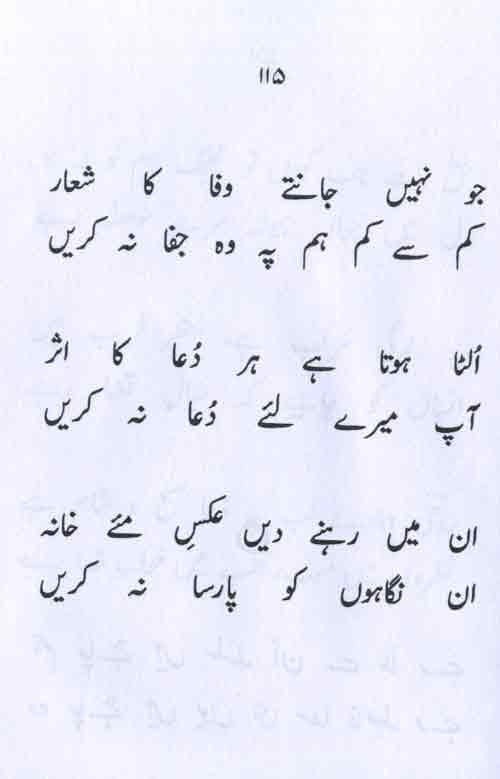 ۱۱۵
جو نہیں جانتے وفا کا شعار
کم سے کم ہم پہ وہ جفا نہ کریں
اُلٹا ہوتا ہے ہر دُعا کا اثر
آپ میرے لئے دُعا نہ کریں
ان میں رہنے دیں عکسِ مئے خانہ
ان نگاہوں کو پارسا نہ کریں